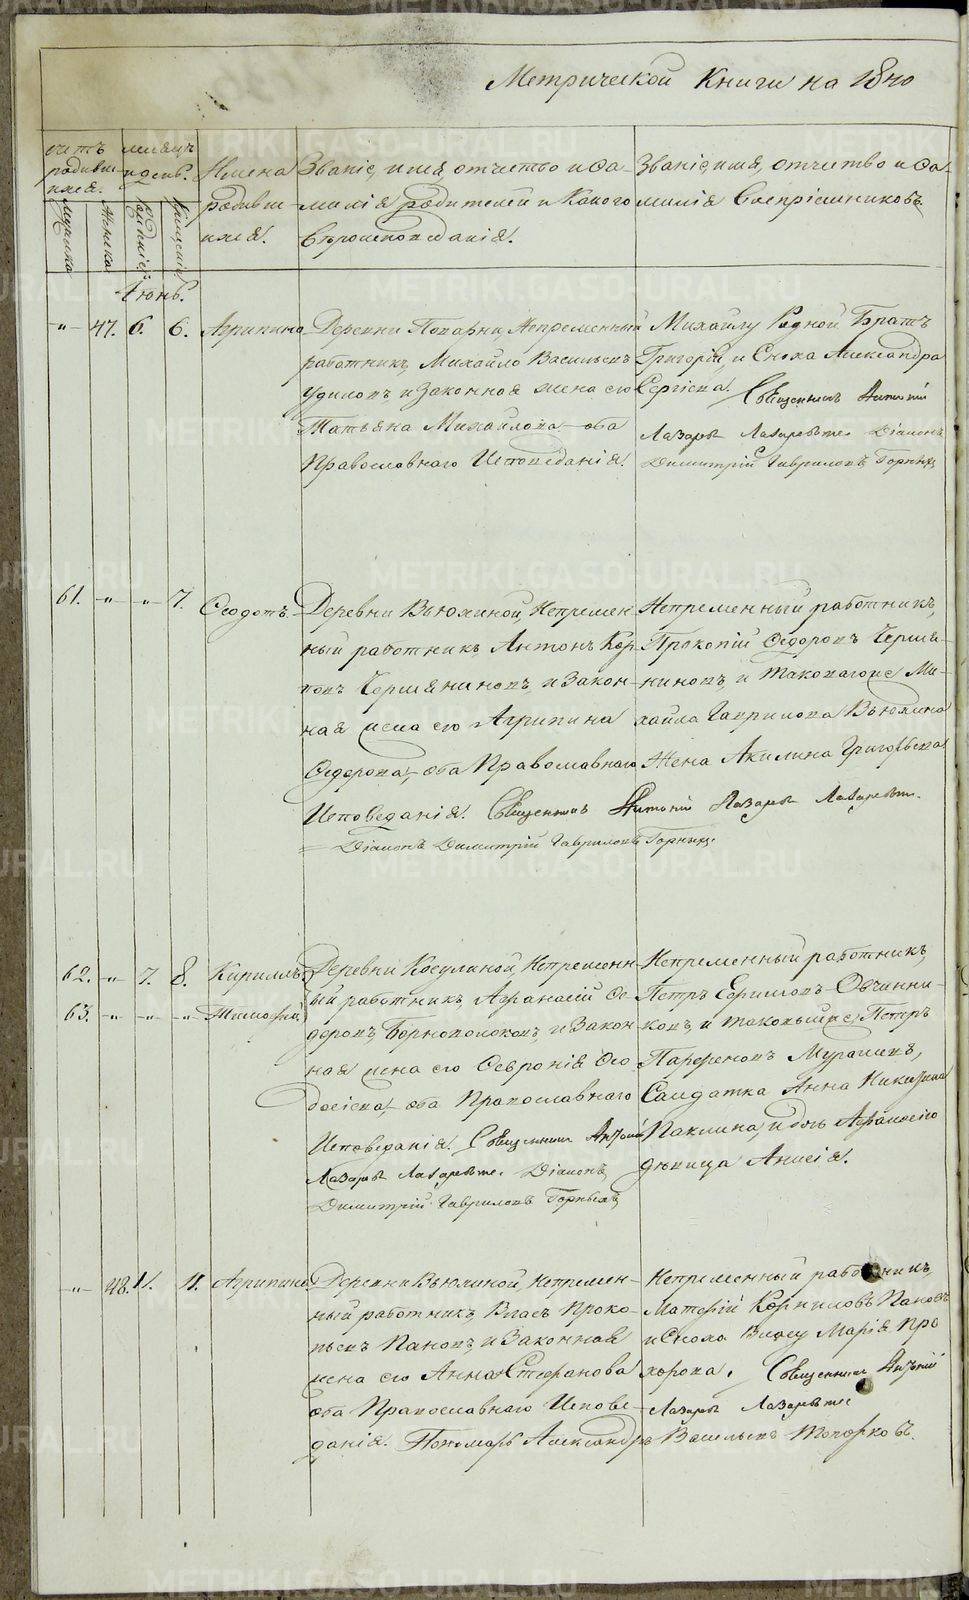 Метрической Книги на 1840
счетъ родившихся.
мужска
женска
месяцъ и день.
рожденiе
крещенiе
Имена родившихся.
Званіе, имя, отчество и фамилія родителей и Какого Вѣроисповеданія.
Званіе, имя, отчество и фамилія Воспріемниковъ.
Іюнь.
-„- 47. 6. 6. Агрипина.
Деревни Непременный
работникъ, Михайло Васильевъ
Удиловъ, и Законная жена его
Татьяна Михайлова – оба
Православнаго Исповеданія.
Михайлу Родной Братъ
Григорій, и Сноха Александра
Сергіева. Священникъ Антоній
Лазаревъ Діаконъ
Димитрій Гавриловъ Горныхъ
61. -„- -„- 7. Ѳеодотъ.
Деревни Вьюхиной, Непремен-
ный работникъ, Антонъ Кор-
ниловъ и Закон-
ная жена его Агрипина
Ѳедорова, – оба Православнаго
Исповеданія. Священникъ Антоній Лазаревъ
Діаконъ Димитрій Гавриловъ Горныхъ.
Непременный работникъ,
Прокопій Ѳедоровъ
и таковагоже Ми-
хайла Гаврилова Вьюхина
Жена Акилина Григорьева
62. -„- 7. 8. Кириллъ.
63. -„- -„- -„- Тимофей.
Деревни Косулиной, Непременн-
ый работникъ, Афанасій Ѳе-
доровъ и Закон-
ная жена его Ѳевронія Ѳео-
досіева, – оба Православнаго
Исповеданія. Священникъ Антоній
Лазаревъ Діаконъ
Димитрій Гавриловъ Горныхъ
Непременный работникъ,
Петръ Ефимовъ Овчинни-
ковъ, и таковыйже, Петръ
Парфеновъ
Салдатка Анна Никифорова
и дочь Афанасіева
дѣвица Анисія.
-„- 48. 11. 11. Агрипина.
Деревни Вьюхиной, Непремен-
ный работникъ, Власъ Проко-
пьевъ Пановъ, и Законная
жена его Анна Стефанова
оба Православнаго Испове-
данія. Пономарь Александръ Васильевъ Топорковъ.
Непременный работникъ,
Матфій Корниловъ Пановъ
и Сноха Власу Марія Про-
хорова. Священникъ Антоній
Лазаревъ
METRIKI.GASO-URAL.RU